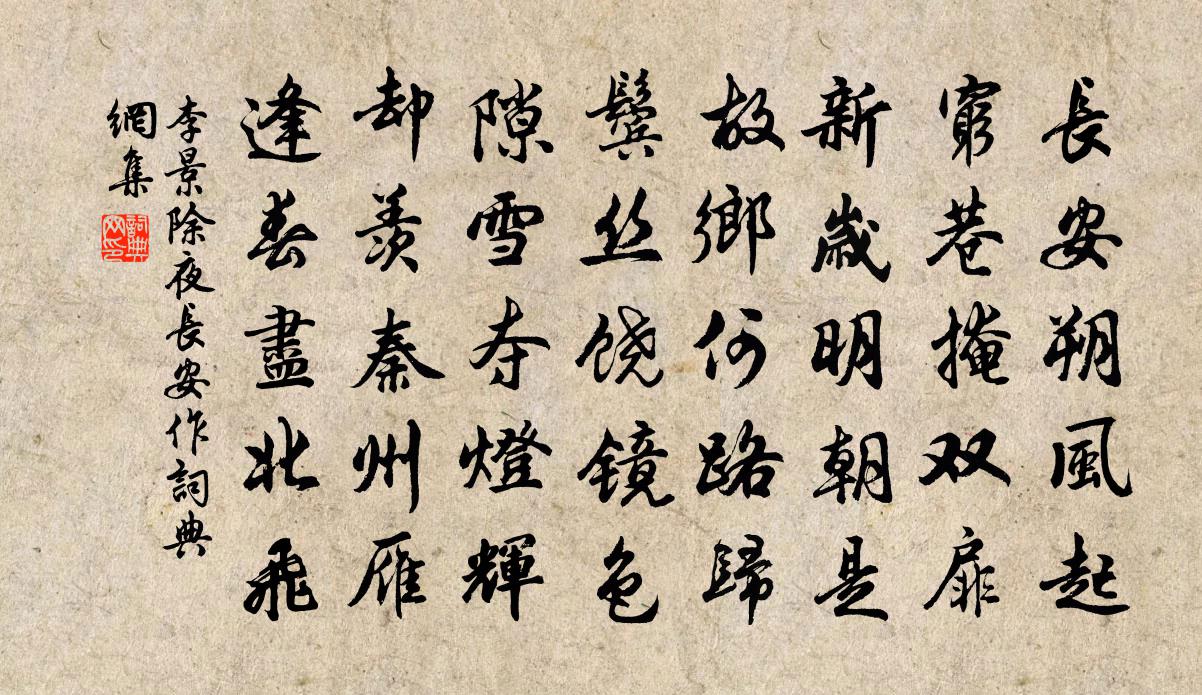 長安朔風起
窮巷掩双扉
新歲明朝是
故鄉何路歸
鬓丝饶镜色
隙雪夺燈輝
却羨秦州雁
逢春盡北飛
李景除夜長安作詞典
網集
詞典网印